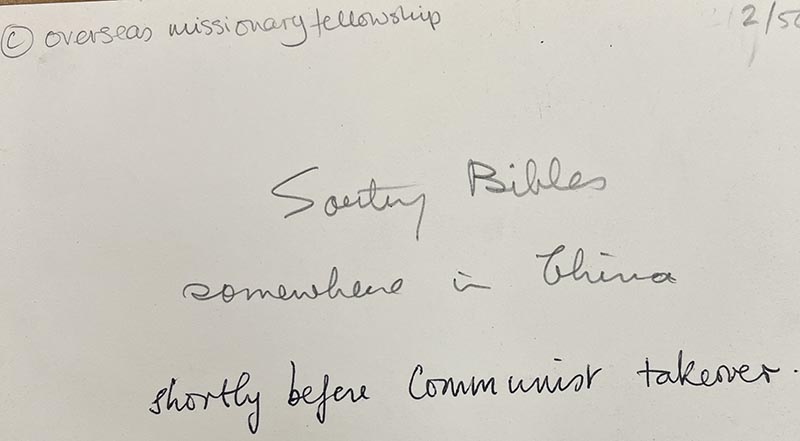 © overseas missionary fellowship
2/50
Sorting Bibles
somewhere in China
shortly before Communist takeover.